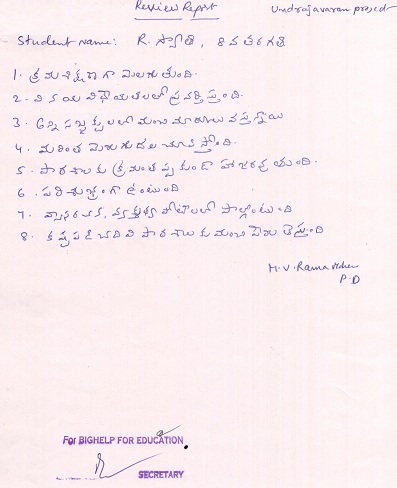 Review Report
Undrajavaram project
Student name: R. స్వాతి, 8వ తరగతి
1. క్రమశిక్షణగా మెలుగుతుంది.
2. వినయ విధేయతలతో ప్రవర్తిస్తుంది.
3. అన్ని సబ్జెక్టులలో మంచి మార్కులు వస్తున్నాయి
4. మరింత మెరుగుదల చూపిస్తోంది.
5. పాఠశాలకు క్రమంతప్పకుండా హాజరవుతుంది.
6. పరిశుభ్రంగా ఉంటుంది
7. వ్యాసరచన, వక్తృత్వ పోటీలలో పాల్గొంటుంది
8. కష్టపడి చదివి పాఠశాలకు మంచి పేరు తెస్తుంది
M.V. Rama
P.D
For BIGHELP FOR EDUCATION
SECRETARY